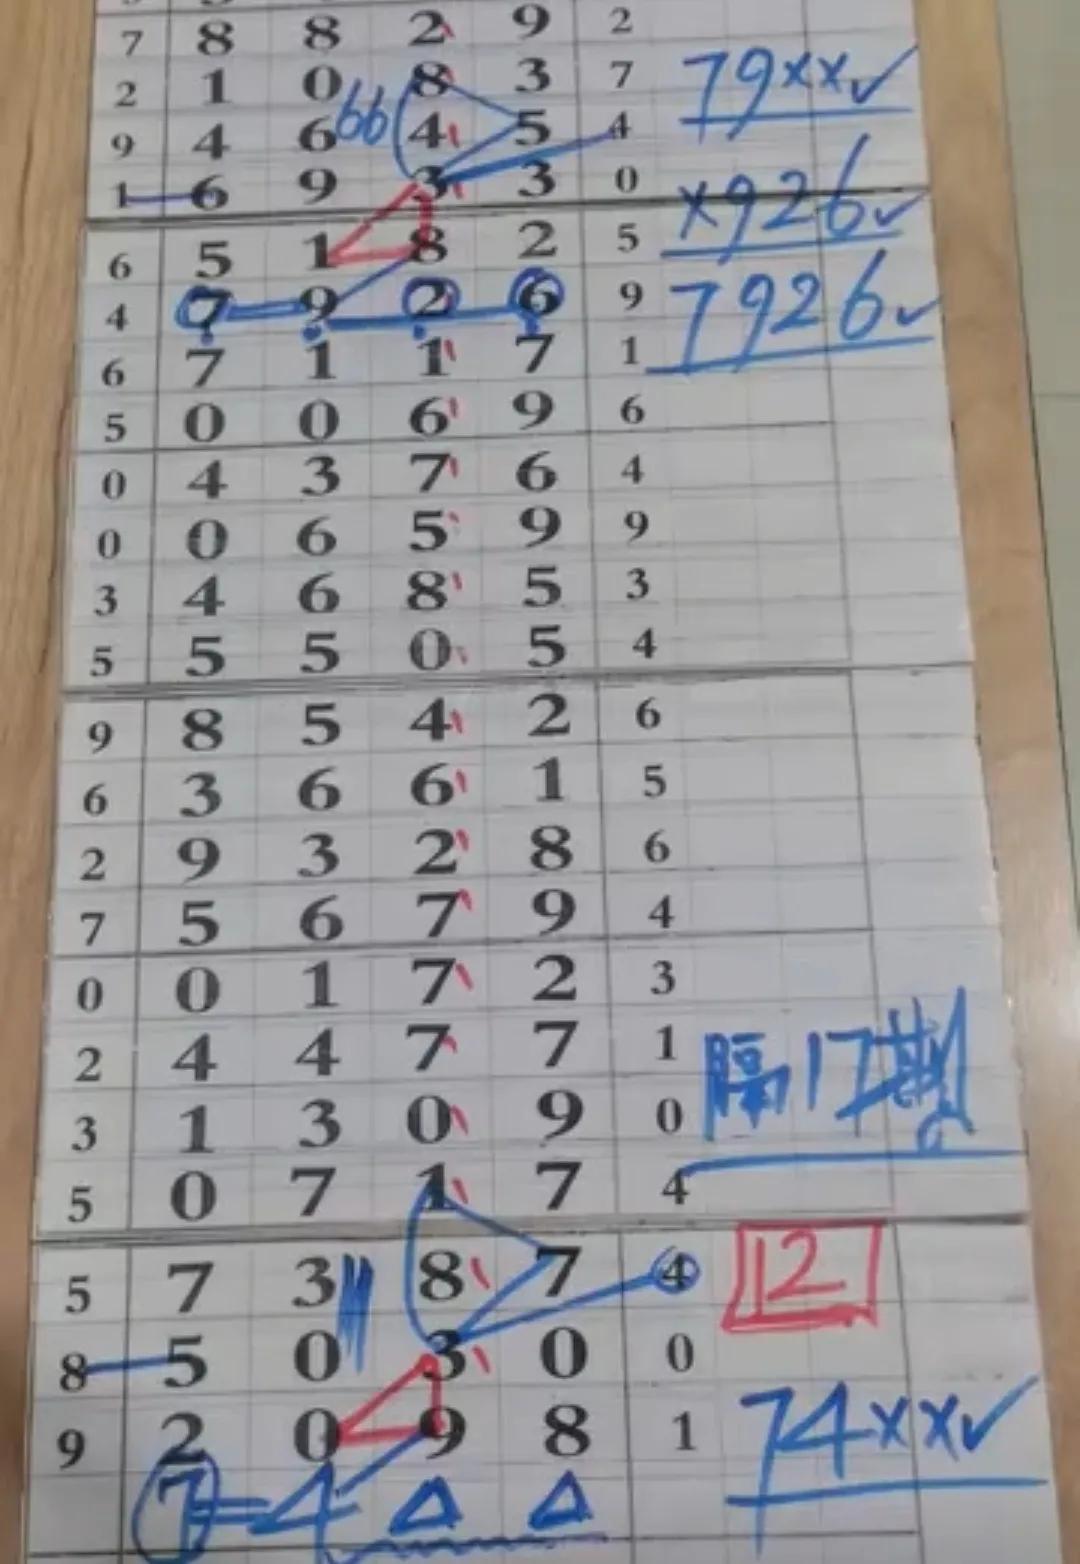 7 8 8 2 9 2
2 1 0 8 3 7 79××✓
9 4 6 66 4 5 4
1 6 9 3 3 0 ×926✓
6 5 1 8 2 5
4 7 9 2 6 9 7926✓
6 7 1 1 7 1
5 0 0 6 9 6
0 4 3 7 6 4
0 0 6 5 9 9
3 4 6 8 5 3
5 5 5 0 5 4
9 8 5 4 2 6
6 3 6 6 1 5
2 9 3 2 8 6
7 5 6 7 9 4
0 0 1 7 2 3
2 4 4 7 7 1
3 1 3 0 9 0 隔17期
5 0 7 1 7 4
5 7 3 8 7 4 12
8 5 0 3 0 0
9 2 0 9 8 1 74××✓
7 = 4 △ △